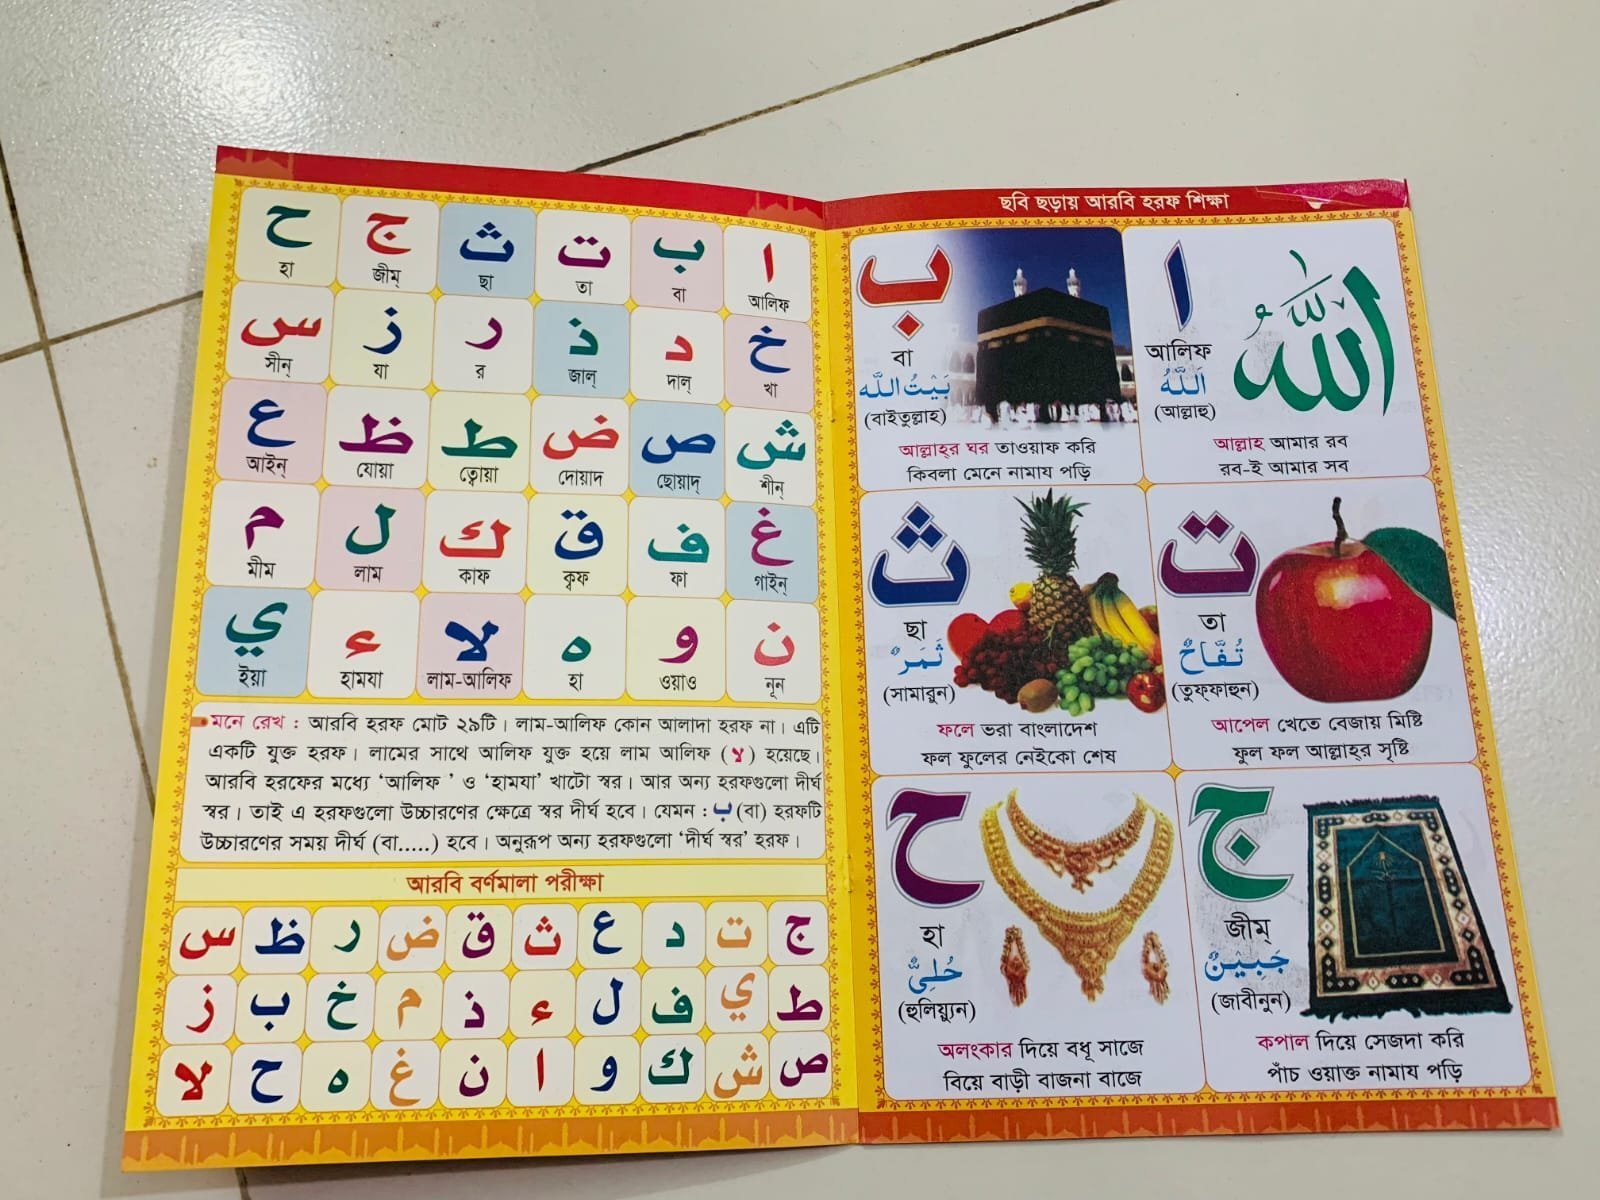 ا ب ت ث ج ح
আলিফ বা তা ছা জীম্ হা
خ د ذ ر ز س
খা দাল্ জাল্ র যা সীন্
ش ص ض ط ظ ع
শীন্ ছোয়াদ্ দোয়াদ ত্বোয়া যোয়া আইন্
غ ف ق ك ل م
গাইন্ ফা ক্বফ কাফ লাম মীম
ن و ه لا ء ي
নূন ওয়াও হা লাম-আলিফ হামযা ইয়া
মনে রেখ : আরবি হরফ মোট ২৯টি। লাম-আলিফ কোন আলাদা হরফ না। এটি
একটি যুক্ত হরফ। লামের সাথে আলিফ যুক্ত হয়ে লাম আলিফ (لا) হয়েছে।
আরবি হরফের মধ্যে ‘আলিফ ’ ও ‘হামযা’ খাটো স্বর। আর অন্য হরফগুলো দীর্ঘ
স্বর। তাই এ হরফগুলো উচ্চারণের ক্ষেত্রে স্বর দীর্ঘ হবে। যেমন : ب (বা) হরফটি
উচ্চারণের সময় দীর্ঘ (বা.....) হবে। অনুরূপ অন্য হরফগুলো ‘দীর্ঘ স্বর’ হরফ।
আরবি বর্ণমালা পরীক্ষা
ج ت د ع ث ق ض ر ظ س
ط ي ف ل ء ذ م خ ب ز
ص ش ك و ا ن غ ه ح لا
ছবি ছড়ায় আরবি হরফ শিক্ষা
ا
الله
আলিফ
اَللّٰهُ
(আল্লাহু)
আল্লাহ আমার রব
রব-ই আমার সব
ب
বা
بَيْتُ اللّٰه
(বাইতুল্লাহ)
আল্লাহ্‌র ঘর তাওয়াফ করি
কিবলা মেনে নামায পড়ি
ت
তা
تُفَّاحٌ
(তুফ্ফাহুন)
আপেল খেতে বেজায় মিষ্টি
ফুল ফল আল্লাহ্‌র সৃষ্টি
ث
ছা
ثَمَرٌ
(সামারুন)
ফলে ভরা বাংলাদেশ
ফল ফুলের নেইকো শেষ
ج
জীম্
جَبِيْنٌ
(জাবীনুন)
কপাল দিয়ে সেজদা করি
পাঁচ ওয়াক্ত নামায পড়ি
ح
হা
حُلِيٌّ
(হুলিয়্যুন)
অলংকার দিয়ে বধূ সাজে
বিয়ে বাড়ী বাজনা বাজে